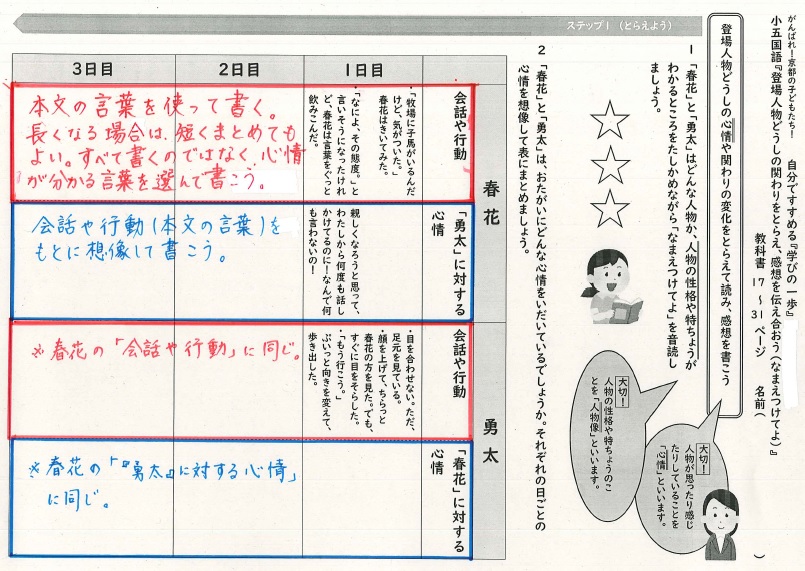 がんばれ！京都の子どもたち！　自分ですすめる『学びの一歩』
小五国語『登場人物どうしの関わりをとらえ、感想を伝え合おう（なまえつけてよ）』
教科書 17 〜 31 ページ　名前（　　　）
登場人物どうしの心情や関わりの変化をとらえて読み、感想を書こう
ステップ1 （とらえよう）
1 「春花」と「勇太」はどんな人物か、人物の性格や特ちょうが
わかるところをたしかめながら「なまえつけてよ」を音読し
ましょう。
☆☆☆
大切！
人物が思ったり感じ
たりしていることを
「心情」といいます。
大切！
人物の性格や特ちょうのこ
とを「人物像」といいます。
2 「春花」と「勇太」は、おたがいにどんな心情をいだいているでしょうか。それぞれの日ごとの
心情を想像して表にまとめましょう。
春花
勇太
会話や行動
「勇太」に対する
心情
会話や行動
「春花」に対する
心情
1日目
・「牧場に子馬がいるんだ
けど、気がついた。」
春花はきいてみた。
・「なによ、その態度。」と
言いそうになったけれ
ど、春花は言葉をぐっと
飲みこんだ。
親しくなろうと思って、
わたしから何度も話し
かけてるのに！なんで何
も言わないの！
・目を合わせない。ただ、
足元を見ている。
・顔を上げて、ちらっと
春花の方を見た。でも、
すぐに目をそらした。
・「もう行こう。」
ぷいっと向きを変えて、
歩き出した。
2日目
3日目
本文の言葉を使って書く。
長くなる場合は、短くまとめても
よい。すべて書くのではなく、心情
が分かる言葉を選んで書こう。
会話や行動（本文の言葉）を
もとに想像して書こう。
※春花の「会話や行動」に同じ。
※春花の「『勇太』に対する心情」
に同じ。